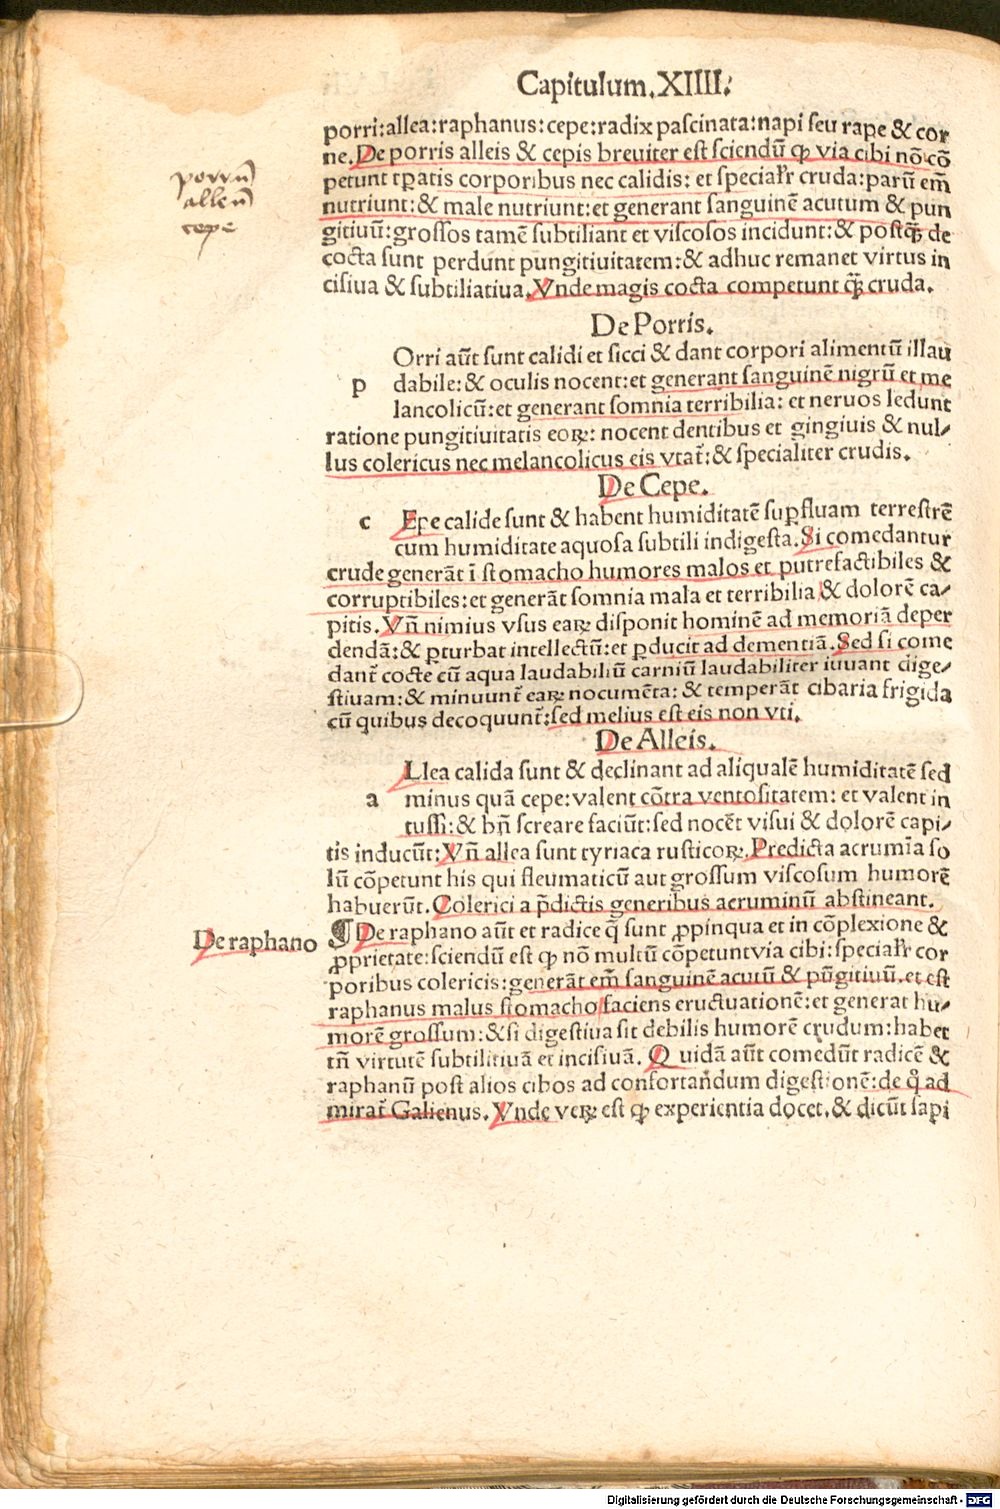 Capitulum.XIIII.
porri:allea:raphanus:cepe:radix paſcinata:napi ſeu rape & cor
ne.De porris alleis & cepis breuiter eſt ſciendū ꝙ via cibi nō cō
petunt tꝑatis corporibus nec calidis: et ſpecialr̄ cruda:parū em̄
nutriunt:& male nutriunt:et generant ſanguinē acutum & pun
gitiuū:groſſos tamē ſubtiliant et viſcoſos incidunt:& poſtq̄ꝫ de
cocta ſunt perdunt pungitiuitatem:& adhuc remanet virtus in
ciſiua & ſubtiliatiua.Vnde magis cocta competunt q̄ꝫ cruda.
porrū
alleū
cepe
De Porris.
Orri aūt ſunt calidi et ſicci & dant corpori alimentū illau
p dabile:& oculis nocent:et generant ſanguinē nigrū et me
lancolicū:et generant ſomnia terribilia: et neruos ledunt
ratione pungitiuitatis eoꝝ: nocent dentibus et gingiuis & nul⸗
lus colericus nec melancolicus eis vtat̄:& ſpecialiter crudis.
De Cepe.
c Epe calide ſunt & habent humiditatē ſuꝑfluam terreſtrē
cum humiditate aquoſa ſubtili indigeſta.Si comedantur
crude generāt ī ſtomacho humores malos et putrefactibiles &
corruptibiles:et generāt ſomnia mala et terribilia & dolorē ca⸗
pitis.Vn̄ nimius vſus eaꝝ diſponit hominē ad memoriā deper
dendā:& ꝑturbat intellectū:et ꝑducit ad dementiā.Sed ſi come
dant̄ cocte cū aqua laudabiliū carniū laudabiliter iuuant dige⸗
ſtiuam:& minuunt̄ eaꝝ nocumēta: & temperāt cibaria frigida
cū quibus decoquunt̄:ſed melius eſt eis non vti.
De Alleis.
Llea calida ſunt & declinant ad aliqualē humiditatē ſed
a minus quā cepe:valent cōtra ventoſitatem: et valent in
tuſſi:& bn̄ ſcreare faciūt:ſed nocēt viſui & dolorē capi⸗
tis inducūt:Vn̄ allea ſunt tyriaca ruſticoꝝ.Predicta acrumīa ſo
lū cōpetunt his qui fleumaticū aut groſſum viſcoſum humorē
habuerūt.Colerici a p̄dictis generibus acruminū abſtineant.
De raphano
¶ De raphano aūt et radice q̄ ſunt ꝓpinqua et in cōplexione &
ꝓprietate:ſciendū eſt ꝙ nō multū cōpetunt via cibi:ſpecialr̄ cor
poribus colericis:generāt em̄ ſanguinē acutū & pūgitiuū.et eſt
raphanus malus ſtomacho faciens eructuationē:et generat hu⸗
morē groſſum:&ſi digeſtiua ſit debilis humorē crudum:habet
tn̄ virtutē ſubtilitiuā et inciſiuā. Quidā aūt comedūt radicē &
raphanū poſt alios cibos ad confortandum digeſtionē:de q̊ ad
mirat̄ Galienus.Vnde veꝝ eſt ꝙ experientia docet.& dicūt ſapi
Digitalisierung gefördert durch die Deutsche Forschungsgemeinschaft - DFG